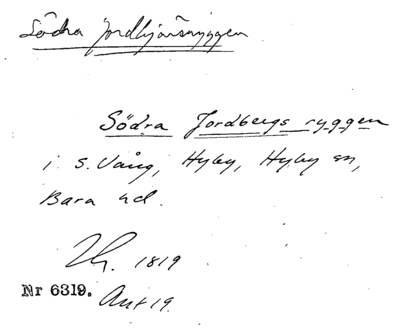 Södra Jordbjärsryggen
Södra Jordbergs ryggen
i S. Vång, Hyby, Hyby sn,
Bara hd.
1819
Nr 6319.